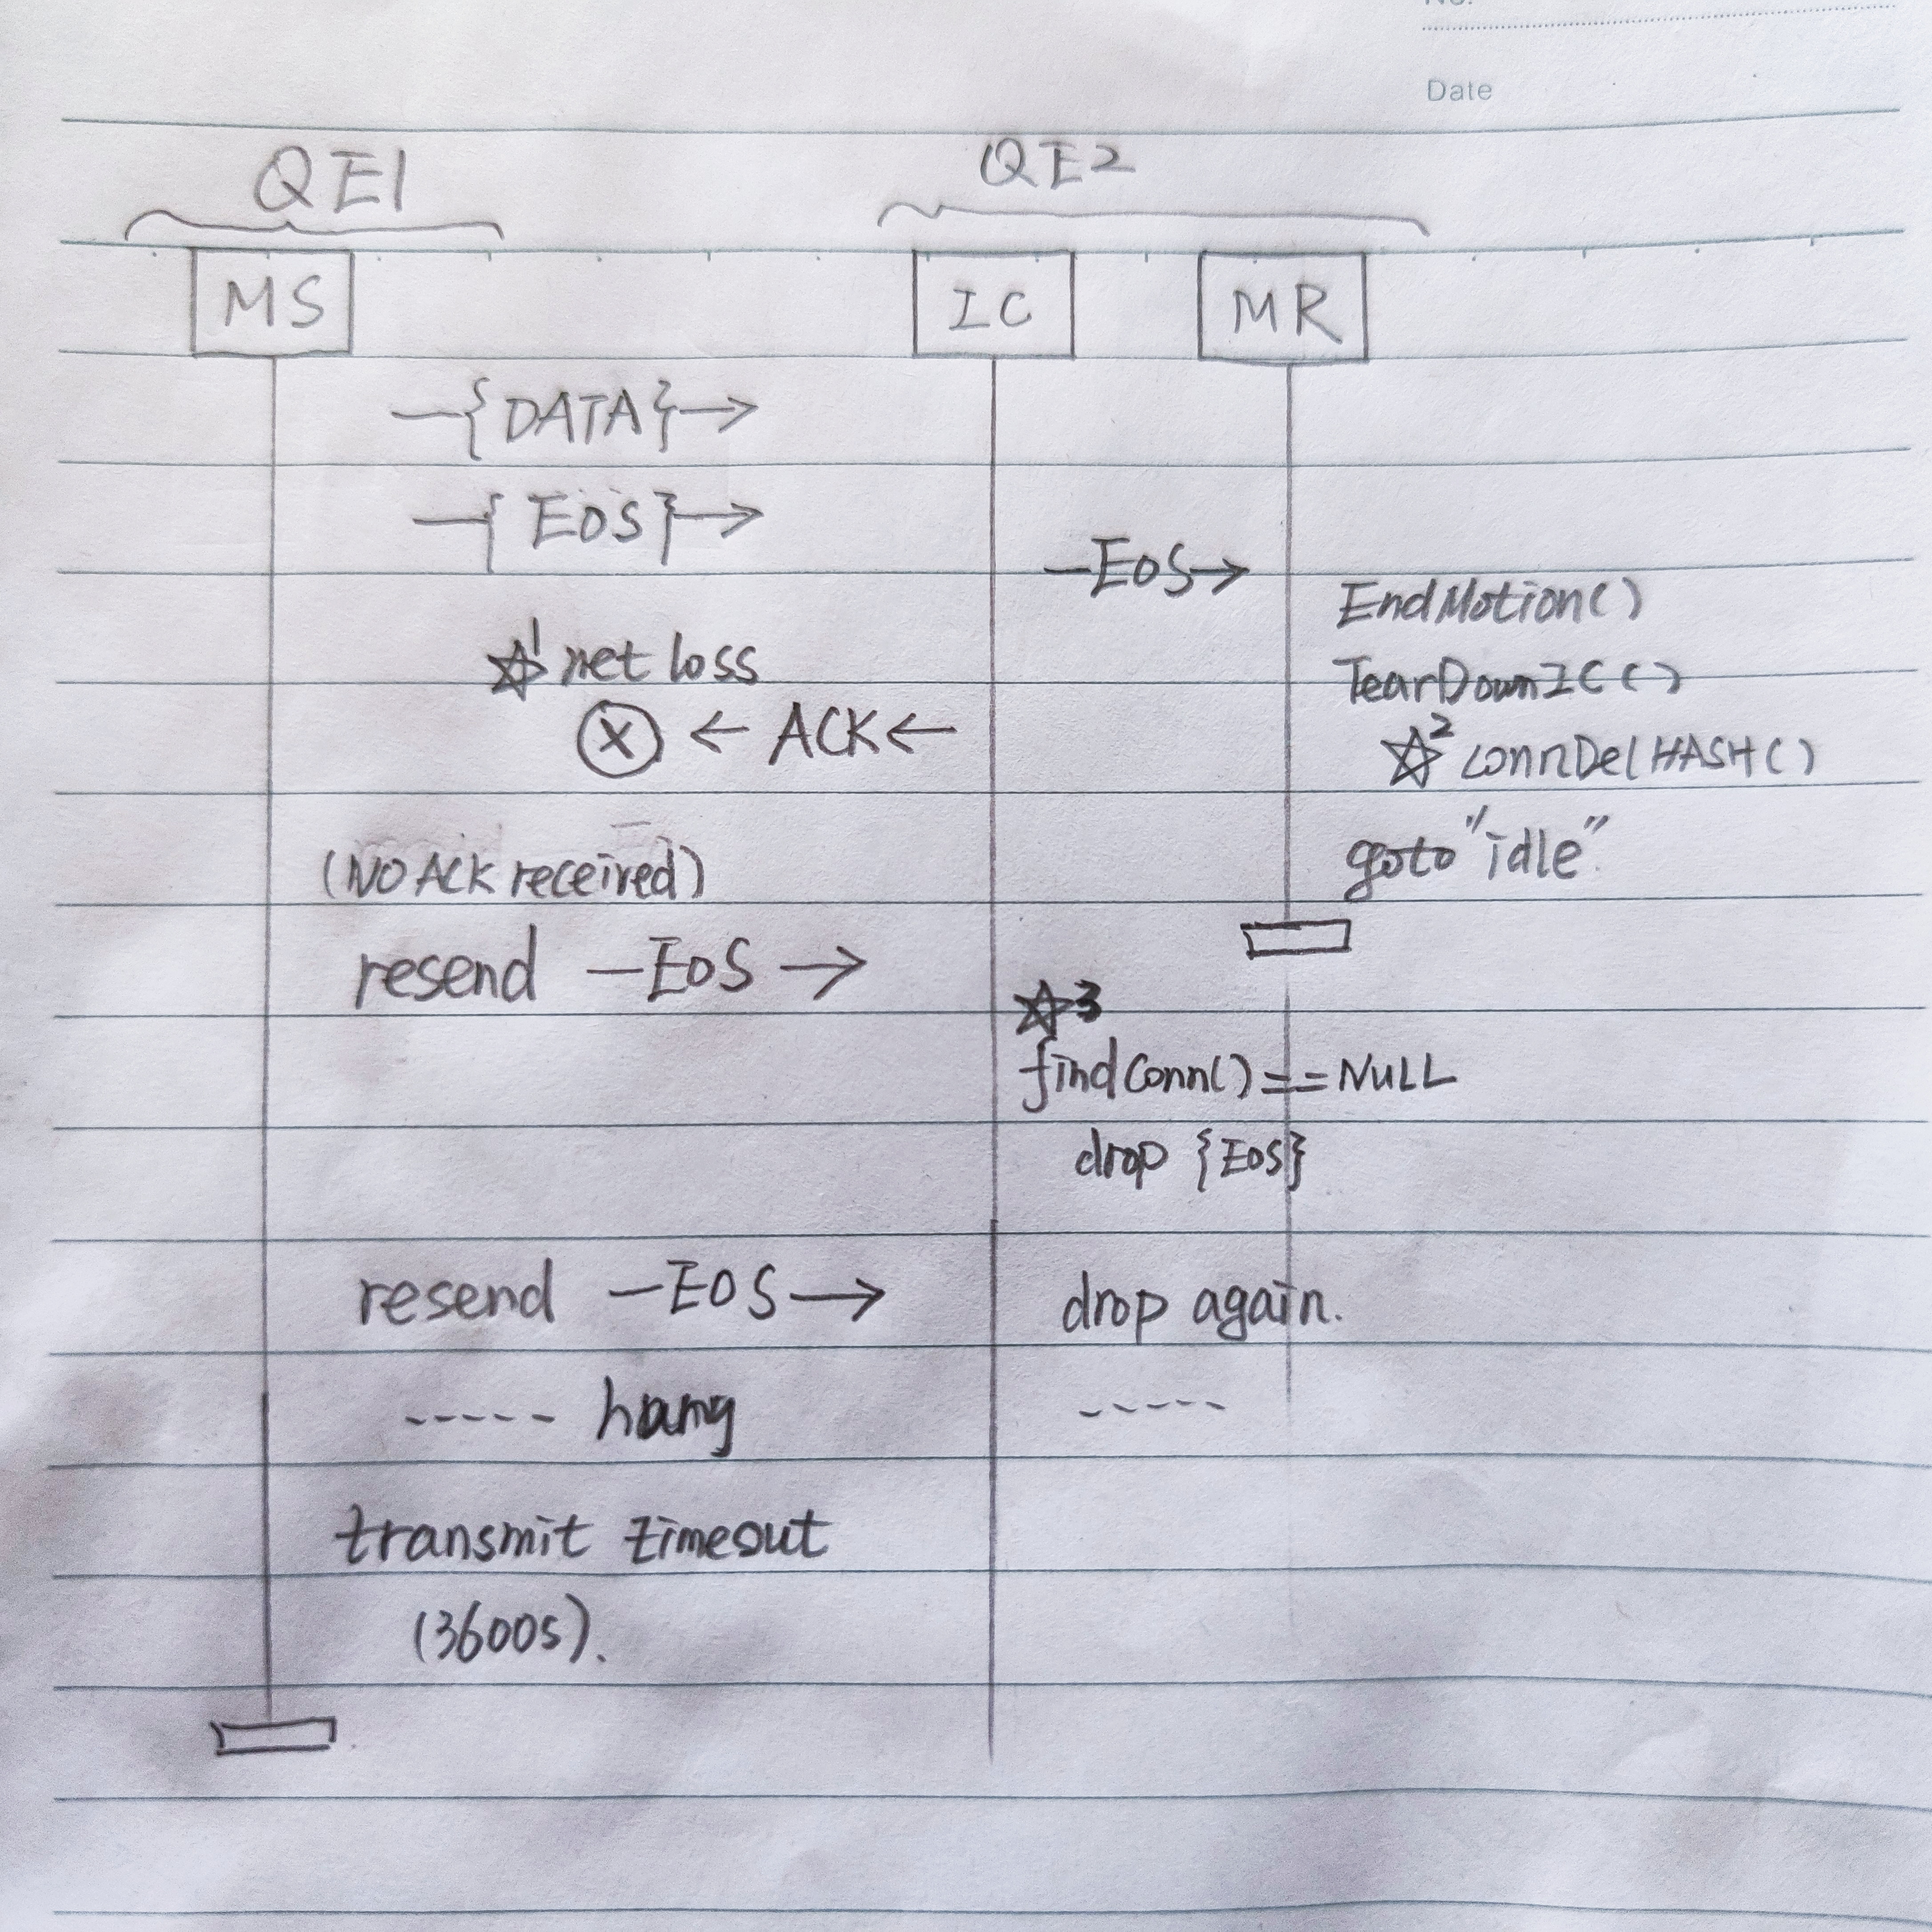 Date
QE1
QE2
MS
IC
MR
—{DATA}→
—{EOS}→
—EOS→
EndMotion()
☆1 net loss
TearDownIC()
ⓧ ← ACK ←
☆2 connDelHASH()
(NO ACK received)
goto "idle".
resend —EOS→
☆3
findConn()==NULL
drop {EOS}
resend —EOS→
drop again.
----- hang
-----
transmit timeout
(3600s).